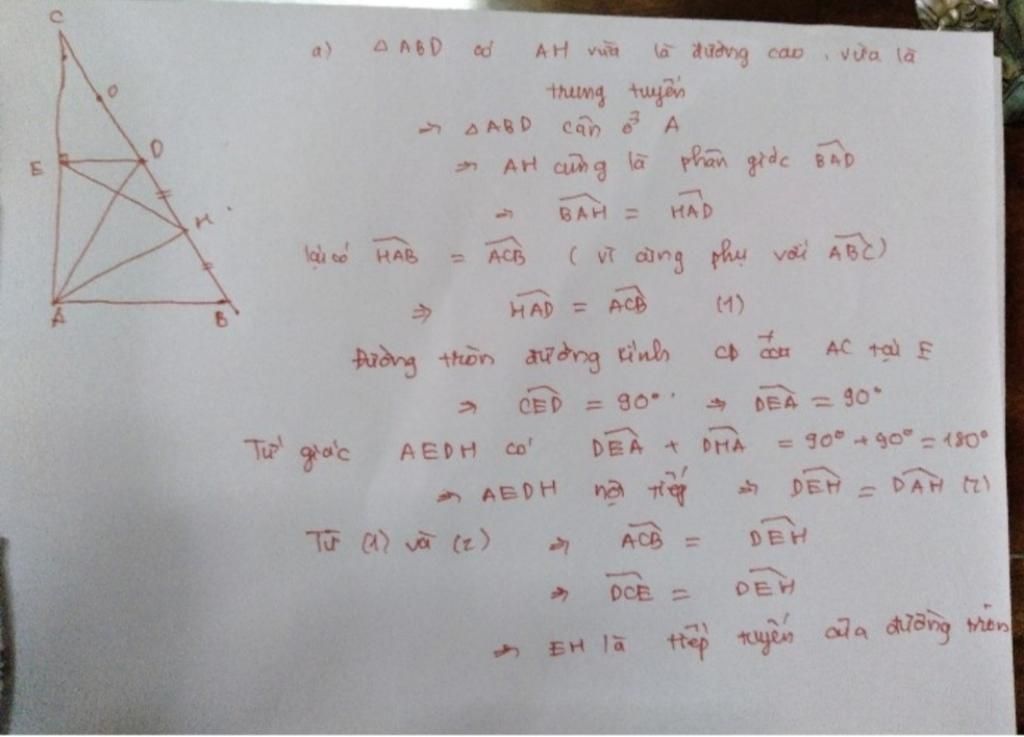 C
O
E
D
H
A
B
a) △ABD có AH vừa là đường cao, vừa là
trung tuyến
⇒ △ABD cân ở A
⇒ AH cũng là phân giác \widehat{BAD}
⇒ \widehat{BAH} = \widehat{HAD}
lại có \widehat{HAB} = \widehat{ACB} (vì cùng phụ với \widehat{ABC})
⇒ \widehat{HAD} = \widehat{ACB} (1)
Đường tròn đường kính CD cắt AC tại E
⇒ \widehat{CED} = 90° ⇒ \widehat{DEA} = 90°
Tứ giác AEDH có \widehat{DEA} + \widehat{DHA} = 90° + 90° = 180°
⇒ AEDH nội tiếp ⇒ \widehat{DEH} = \widehat{DAH} (2)
Từ (1) và (2) ⇒ \widehat{ACB} = \widehat{DEH}
⇒ \widehat{DCE} = \widehat{DEH}
⇒ EH là tiếp tuyến của đường tròn